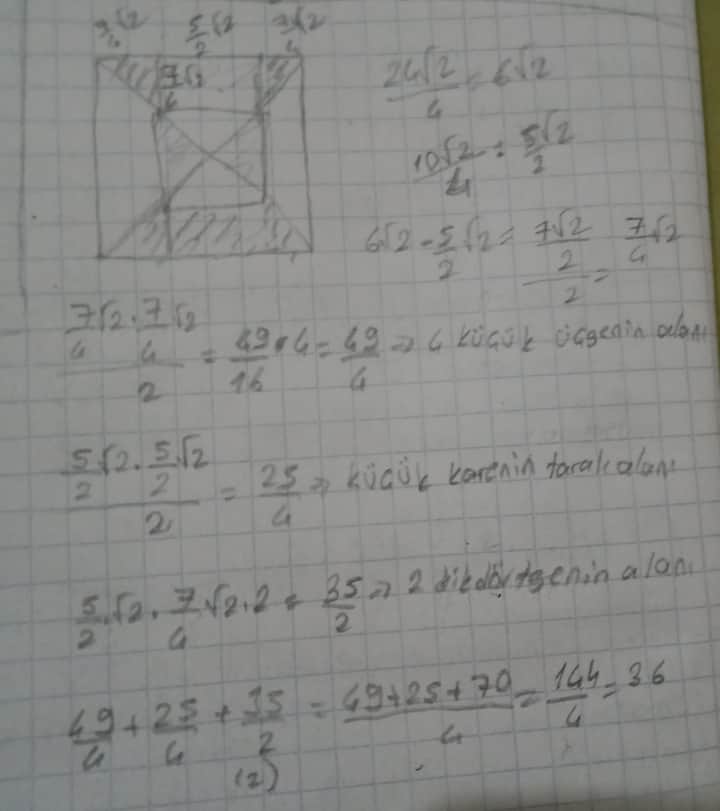 7/4 √2 5/2 √2 7/4 √2
7/4 √2
24√2/4 = 6√2
10√2/4 = 5√2/2
6√2 - 5/2 √2 = 7√2/2 /2 = 7/4 √2
7/4 √2 . 7/4 √2 / 2 = 49/16 . 4 = 49/4 => 4 küçük üçgenin alanı
5/2 √2 . 5/2 √2 / 2 = 25/4 => küçük karenin taralı alanı
5/2 . √2 . 7/4 √2 . 2 = 35/2 => 2 dikdörtgenin alanı
49/4 + 25/4 + 35/2 = 49+25+70/4 = 144/4 = 36
(2)